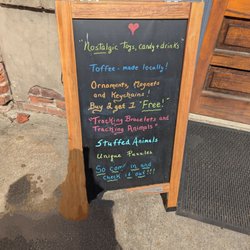 "Nostalgic Toys, candy + drinks"
Toffee - made locally!
Ornaments, Magnets
and Keychains!
Buy 2 get 1 "Free!"
"Tracking Bracelets and
Tracking Animals"
Stuffed Animals
Unique Puzzles
So come in and
check it out!!!